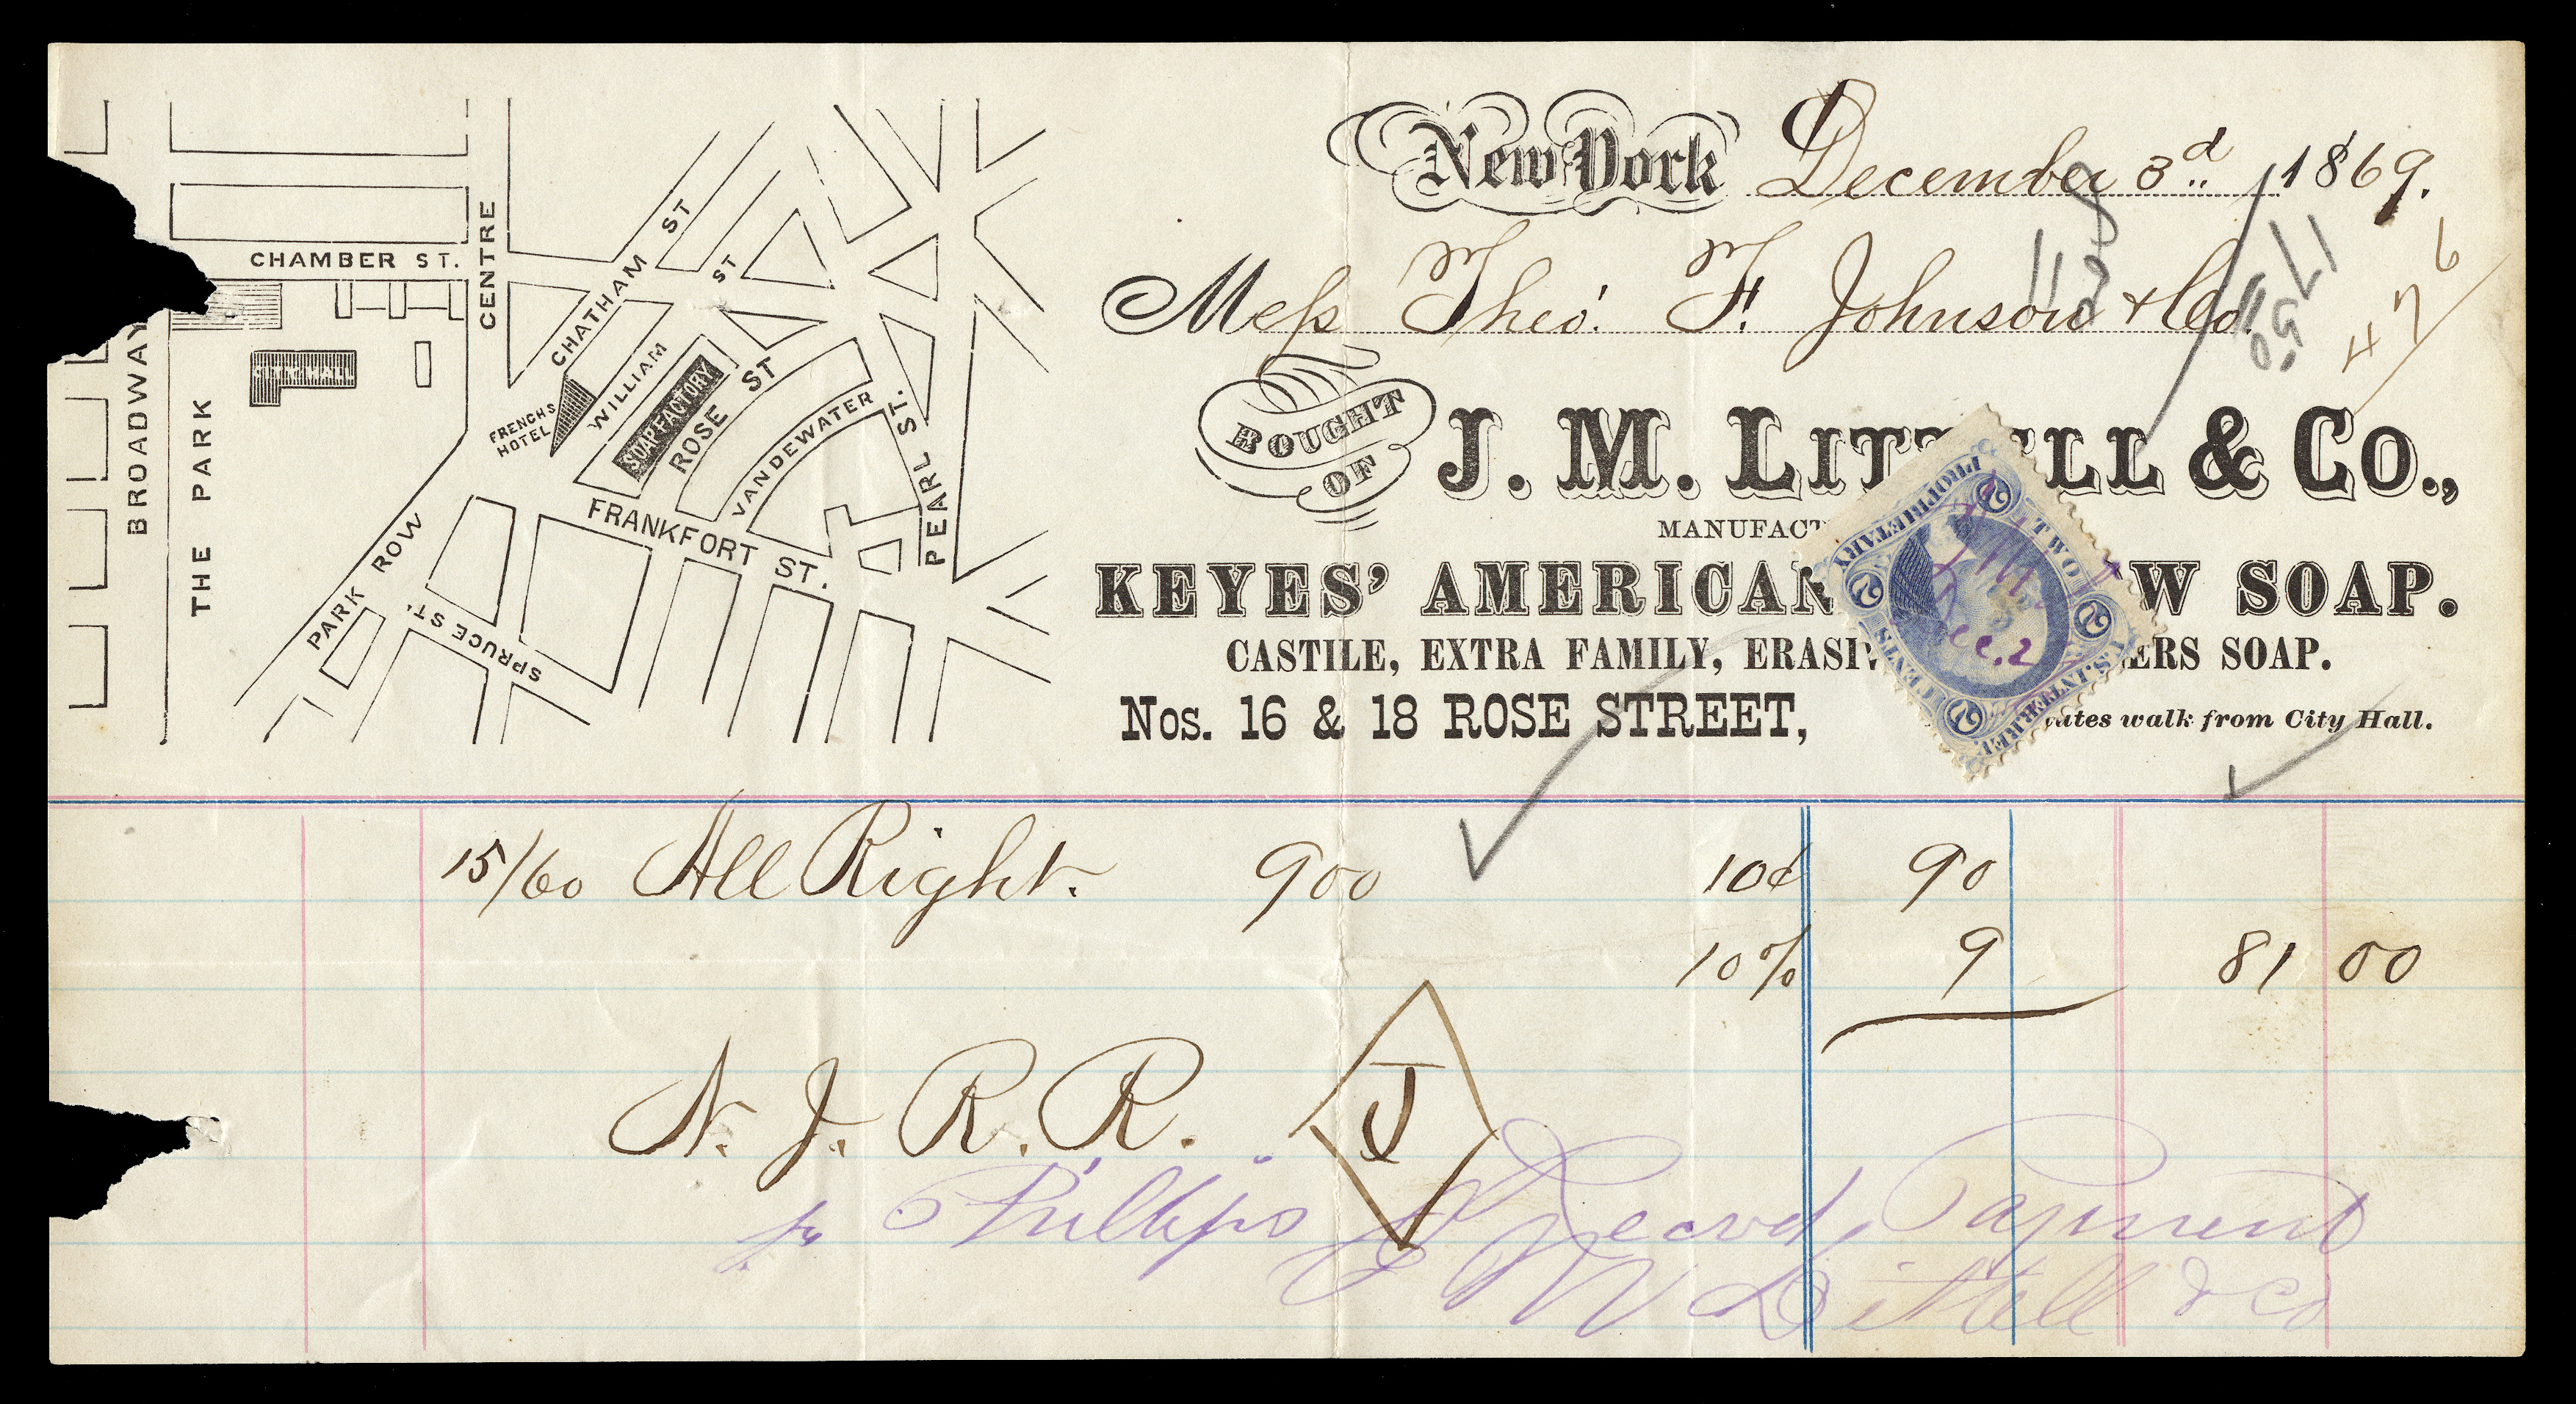 CHAMBER ST.
CENTRE
CHATHAM ST
ST
BROADWAY
THE PARK
CITY HALL
FRENCHS
HOTEL
WILLIAM
SOAP FACTORY
ROSE ST
VANDEWATER
PEARL ST.
FRANKFORT ST.
PARK ROW
SPRUCE ST.
New York December 3d 1869.
Mess Theo. F. Johnson & Co.
1750
476
BOUGHT
OF
J. M. LITTELL & CO.,
MANUFACT
KEYES' AMERICAN W SOAP.
CASTILE, EXTRA FAMILY, ERASIV ERS SOAP.
Nos. 16 & 18 ROSE STREET, utes walk from City Hall.
PROPRIETARY
2 2
TWO CENTS
U.S. INTER. REV.
2 2
Dec. 2
15/60 All Right. 900 10¢ 90
10% 9 81 00
N. J. R. R. J
Recvd, Payment
J M Littell & Co
pr Phillips